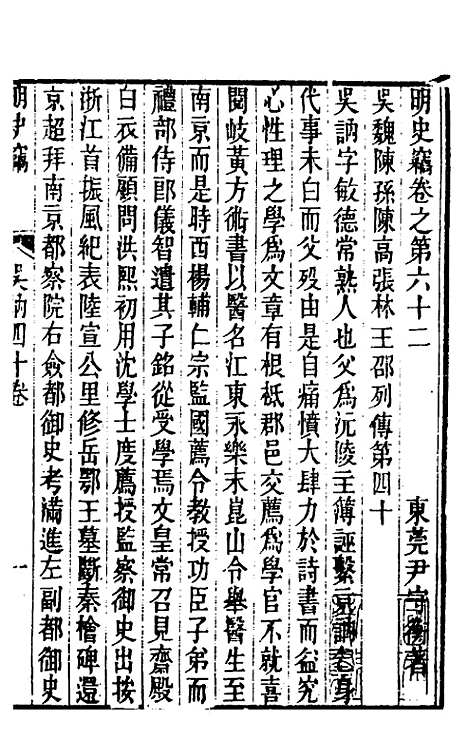 明史竊卷之第六十二
東莞尹守衡著
吳魏陳孫陳高張林王邵列傳第四十
吳訥字敏德常熟人也父爲沅陵主簿誣繫京訥乞身
代事未白而父歿由是自痛憤大肆力於詩書而益究
心性理之學爲文章有根柢郡邑交薦爲學官不就喜
閱岐黃方術書以醫名江東永樂末崑山令舉醫生至
南京而是時西楊輔仁宗監國薦令教授功臣子弟而
禮部侍郎儀智遣其子銘從受學焉文皇常召見齋殿
白衣備顧問洪熙初用沈學士度薦授監察御史出按
浙江首振風紀表陸宣公里修岳鄂王墓斷秦檜碑還
京超拜南京都察院右僉都御史考滿進左副都御史
明史竊
吳訥四十卷
一